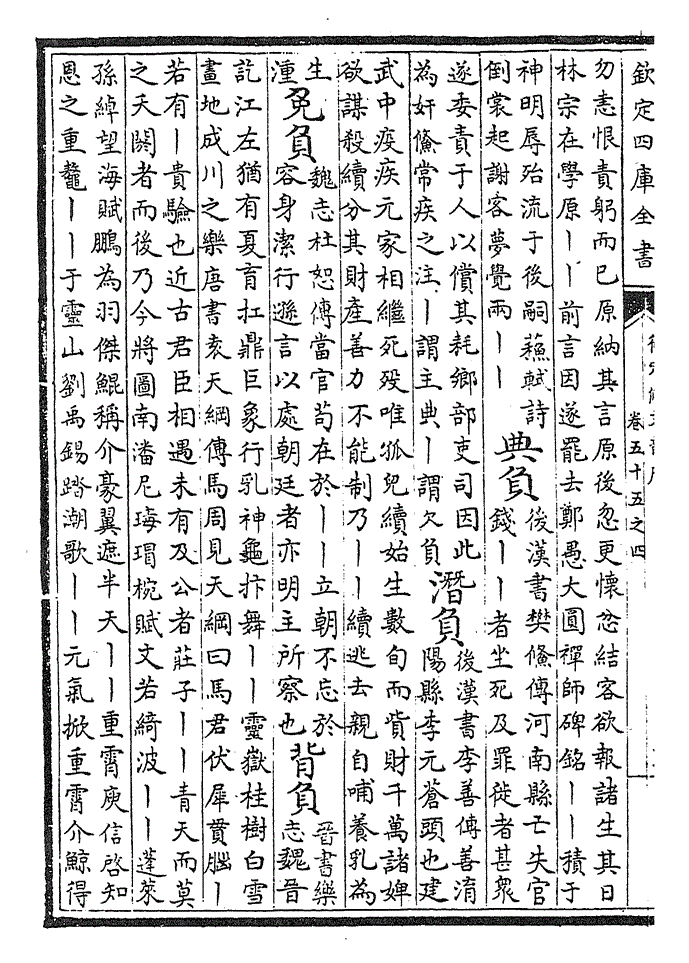 欽定四庫全書
卷五十五之四
勿恚恨責躬而已原納其言原後忽更懷忿結客欲報諸生其日
林宗在學原丨丨前言因遂罷去鄭愚大圓禪師碑銘丨丨積于
神明辱殆流于後嗣蘇軾詩
倒裳起謝客夢覺兩丨丨
典負
後漢書樊儵傳河南縣亡失官
錢丨丨者坐死及罪徙者甚衆
遂委責于人以償其耗鄉部吏司因此
為奸儵常疾之注丨謂主典丨謂欠負
潛負
後漢書李善傳善淯
陽縣李元蒼頭也建
武中疫疾元家相繼死殁唯孤兒續始生數旬而貲財千萬諸婢
欲謀殺續分其財產善力不能制乃丨丨續逃去親自哺養乳為
生
湩
免負
魏志杜恕傳當官苟在於丨丨立朝不忘於
容身潔行遜言以處朝廷者亦明主所察也
背負
晉書樂
志魏晉
訖江左猶有夏育扛鼎巨象行乳神龜抃舞丨丨靈嶽桂樹白雪
畫地成川之樂唐書袁天綱傳馬周見天綱曰馬君伏犀貫腦丨
若有丨貴驗也近古君臣相遇未有及公者莊子丨丨青天而莫
之夭閼者而後乃今將圖南潘尼瑇瑁椀賦文若綺波丨丨蓬萊
孫綽望海賦鵬為羽傑鯤稱介豪翼遮半天丨丨重霄庾信啓知
恩之重鼇丨丨于靈山劉禹錫踏潮歌丨丨元氣掀重霄介鯨得